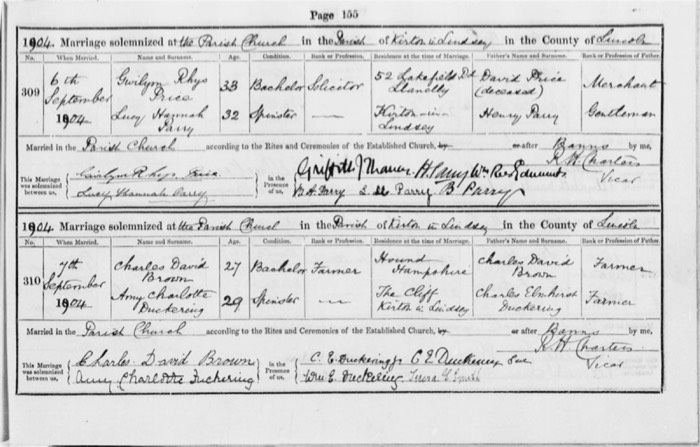 Page 155
1904. Marriage solemnized at the Parish Church in the Parish of Kirton in Lindsey in the County of Lincoln
No. When Married. Name and Surname. Age. Condition. Rank or Profession. Residence at the time of Marriage. Father's Name and Surname. Rank or Profession of Father.
309 6th September 1904 Gwilym Rhys Price 33 Bachelor Solicitor 52 Lakefield Rd Llanelly David Price (deceased) Merchant
Lucy Hannah Parry 32 Spinster — Kirton in Lindsey Henry Parry Gentleman
Married in the Parish Church according to the Rites and Ceremonies of the Established Church, by or after Banns by me,
R H Charters
Vicar
This Marriage was solemnized between us, Gwilym Rhys Price
Lucy Hannah Parry
in the Presence of us, Griffith J H Parry Wm Rees Edmunds
Parry B Parry
1904. Marriage solemnized at the Parish Church in the Parish of Kirton in Lindsey in the County of Lincoln
No. When Married. Name and Surname. Age. Condition. Rank or Profession. Residence at the time of Marriage. Father's Name and Surname. Rank or Profession of Father.
310 7th September 1904 Charles David Brown 27 Bachelor Farmer Hound Hampshire Charles David Brown Farmer
Amy Charlotte Duckering 29 Spinster — The Cliff Kirton in Lindsey Charles Elmhirst Duckering Farmer
Married in the Parish Church according to the Rites and Ceremonies of the Established Church, by or after Banns by me,
R H Charters
Vicar
This Marriage was solemnized between us, Charles David Brown
Amy Charlotte Duckering
in the Presence of us, C. E. Duckering jr C E Duckering Sen
Wm E. Duckering